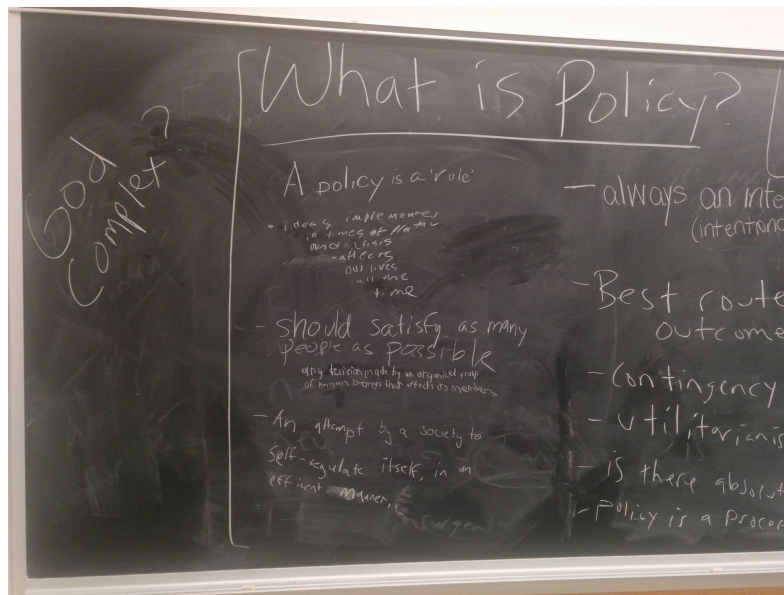 God
Complet?
What is Policy?
A policy is a 'rule'
- ideas implemented
in times of
and crisis
- affects
our lives
all the
time
- should satisfy as many
people as possible
any decision made by an organised group
of human beings that affects its members
- An attempt by a society to
self-regulate itself, in an
efficient manner,
insurgent
- always an inte
(intentiona
- Best route
outcome
- Contingency
- Utilitarianis
- is there absolut
- Policy is a proces